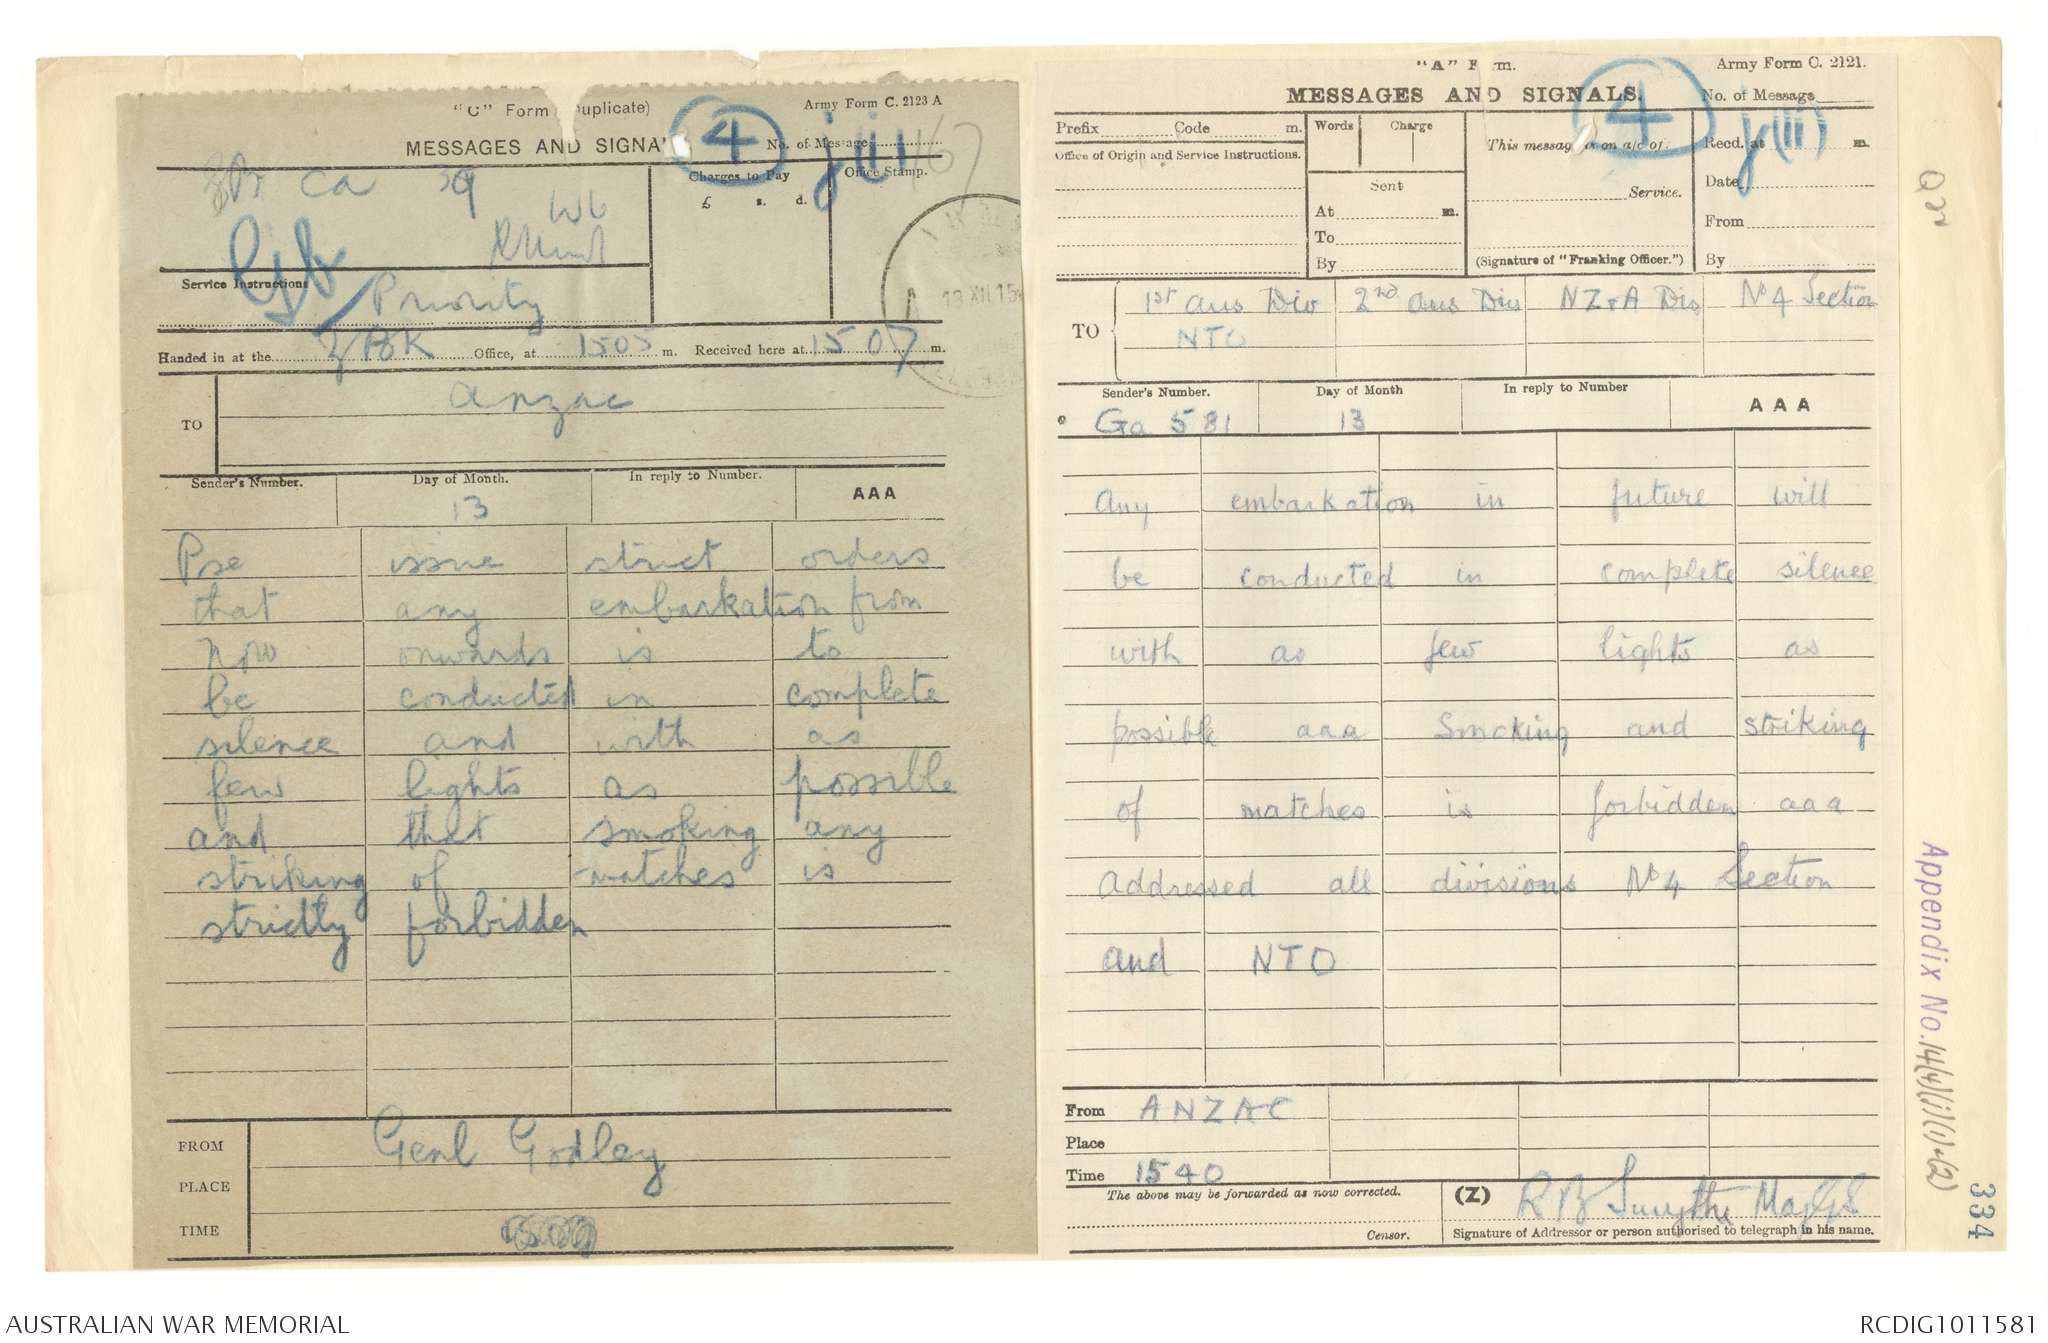 "C" Form (Duplicate)
Army Form C. 2123 A
MESSAGES AND SIGNA
4
No. of Message
j(i)
167
Ca 39
Charges to Pay
£ s. d.
Office Stamp.
13 XII 15
Service Instructions
Priority
Handed in at the ZBK Office, at 1505 m. Received here at 1507 m.
TO
Anzac
Sender's Number.
Day of Month.
In reply to Number.
AAA
13
Pse issue strict orders
that any embarkation from
now onwards is to
be conducted in complete
silence and with as
few lights as possible
and that smoking any
striking of matches is
strictly forbidden
FROM
Genl Godley
PLACE
TIME
"A" F rm.
Army Form C. 2121.
MESSAGES AND SIGNALS.
4
No. of Message
j(ii)
Prefix Code m.
Words Charge
This message is on a/c of:
Recd. at m.
Office of Origin and Service Instructions.
Sent
Date
At m.
Service.
From
To
By
(Signature of "Franking Officer.")
By
TO
1st Aus Div 2nd Aus Div NZ&A Div No 4 Section
NTO
Sender's Number.
Day of Month
In reply to Number
AAA
Ga 581
13
Any embarkation in future will
be conducted in complete silence
with as few lights as
possible aaa Smoking and striking
of matches is forbidden aaa
Addressed all divisions No 4 Section
and NTO
From ANZAC
Place
Time 1540
The above may be forwarded as now corrected.
(Z)
R B Smythe Maj GS
Censor.
Signature of Addressor or person authorised to telegraph in his name.
Appendix No. 14(4)(j)(1)-(2)
334
AUSTRALIAN WAR MEMORIAL
RCDIG1011581